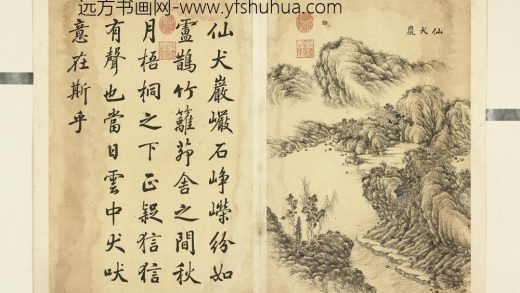 远方书画网-www.yfshuhua.com
仙犬巖
仙犬巖巗石崢嶸紛如
盧鵲竹籬茆舍之間秋
月梧桐之下正疑狺狺
有聲也當日雲中犬吠
意在斯乎